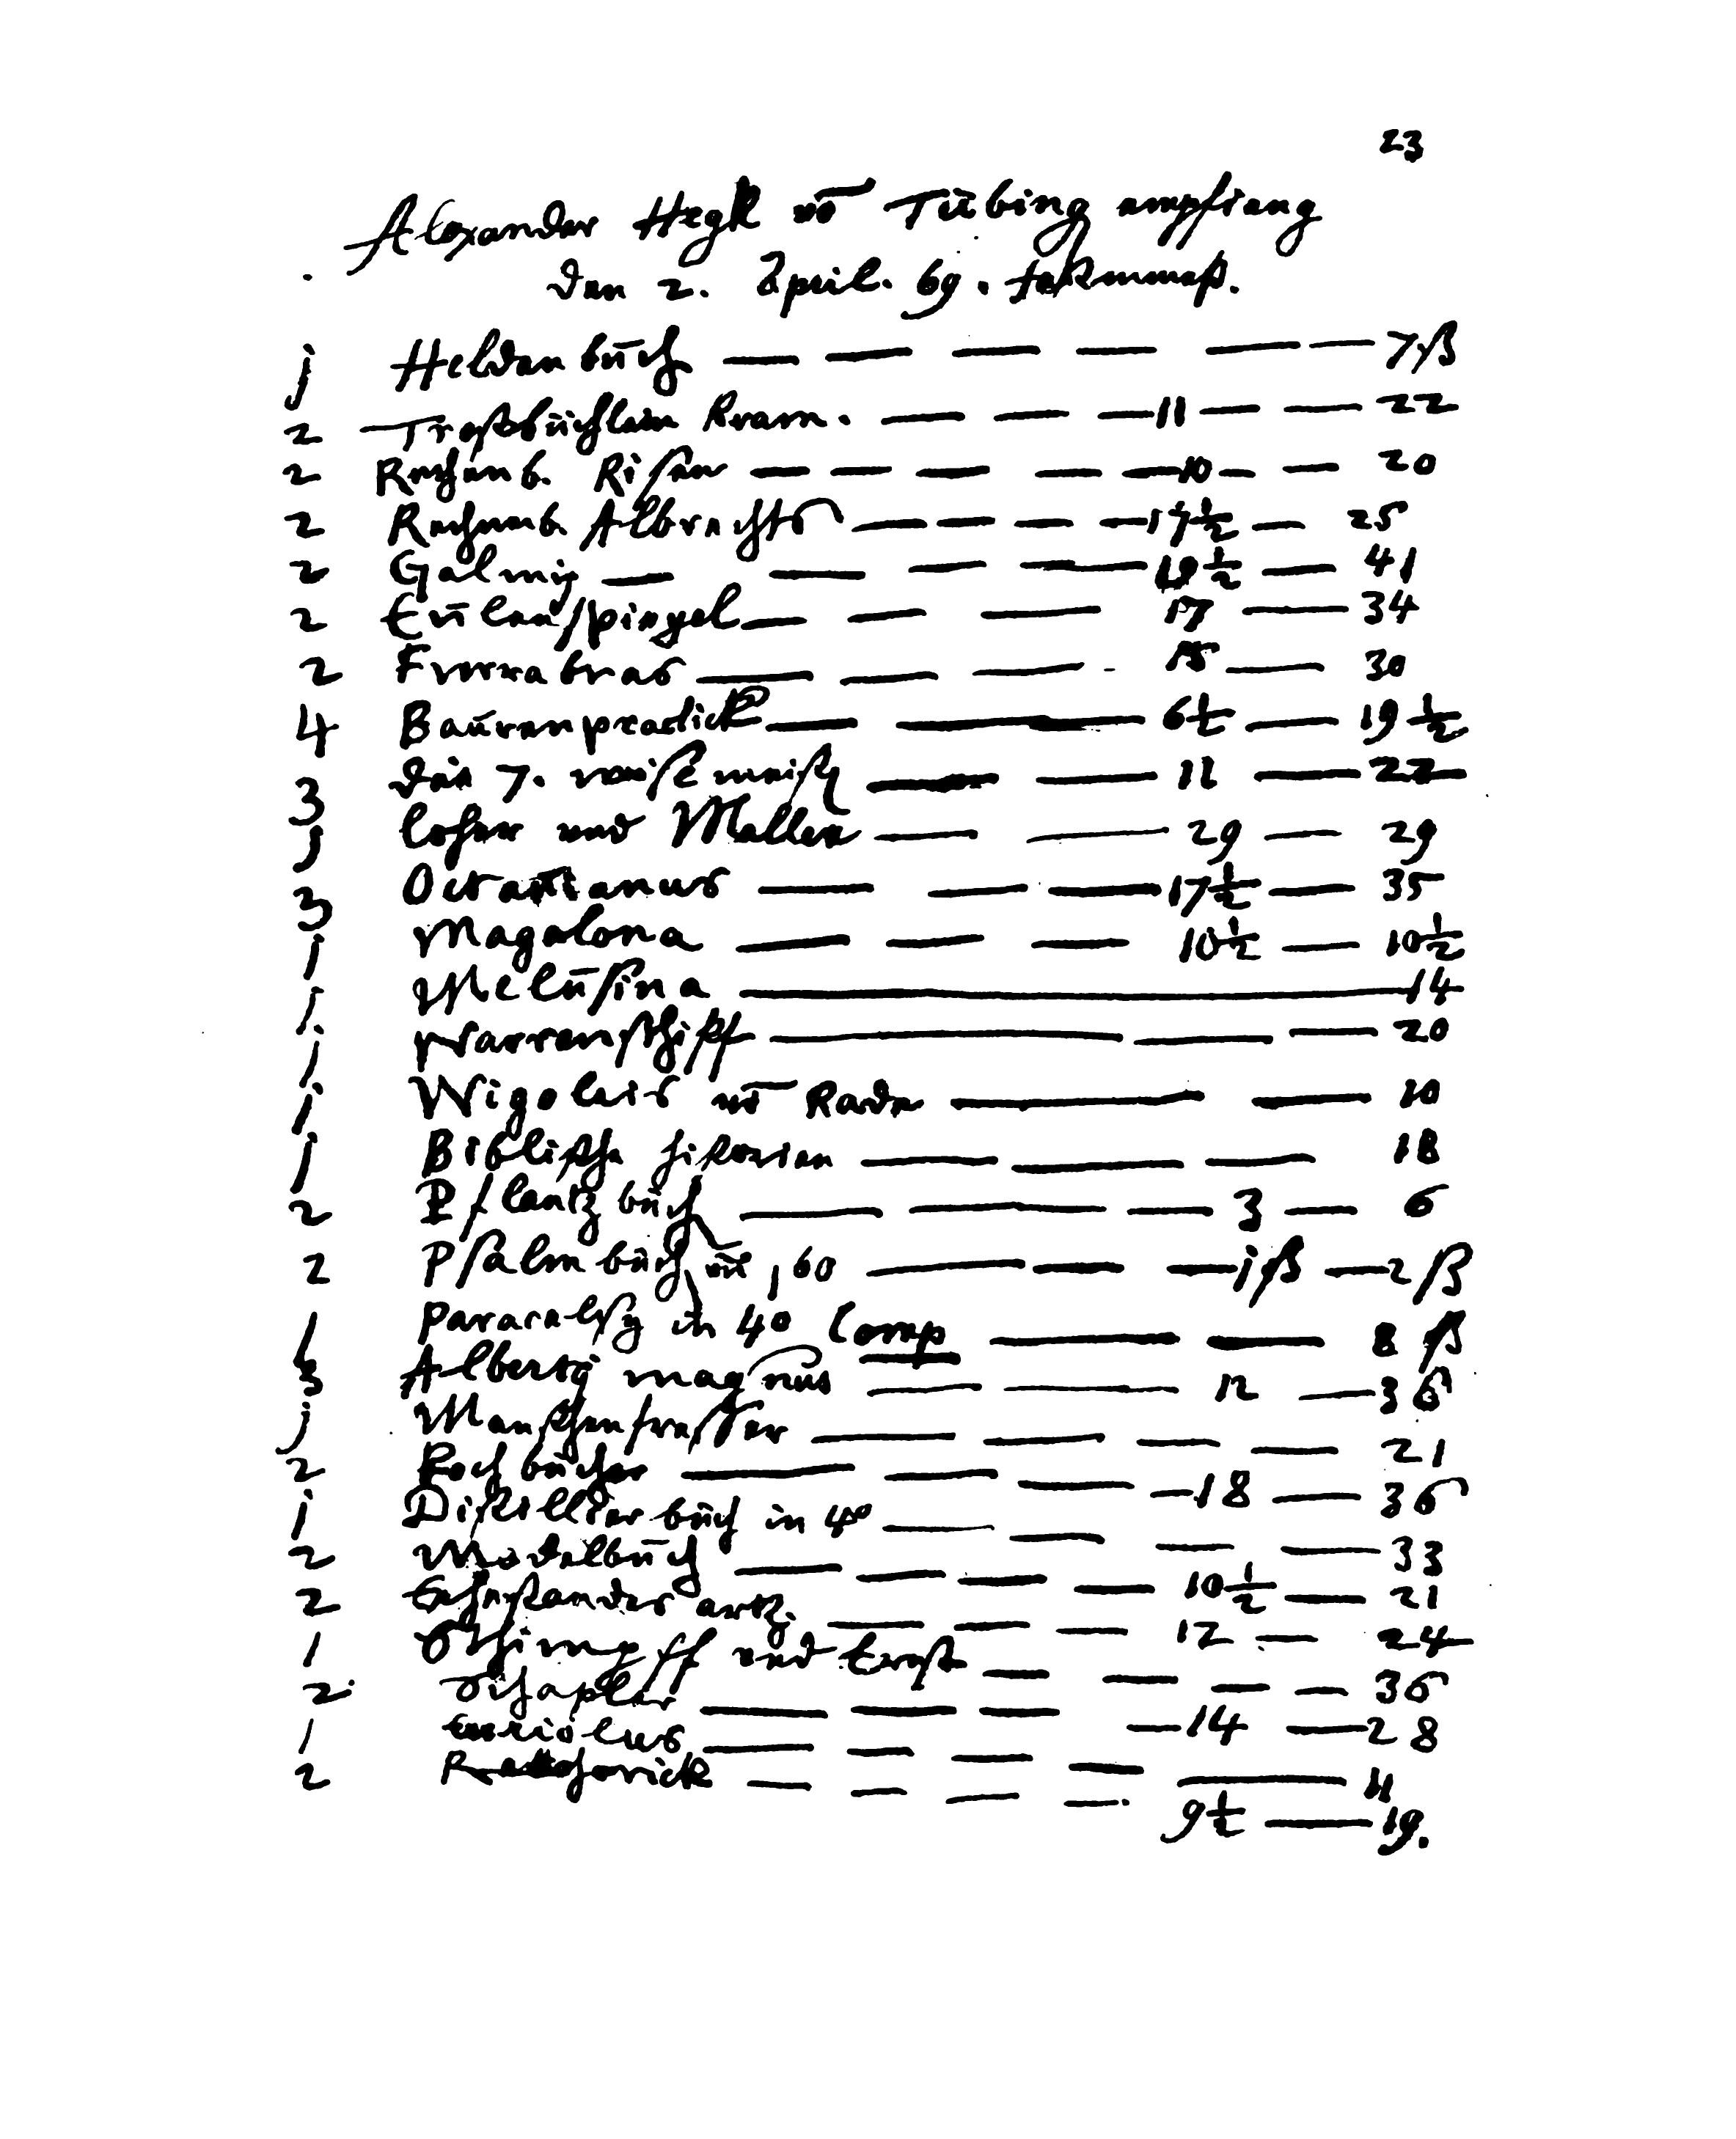 23
Alexander Hegk vō Tübing empfieng
den 2. April. 69. fastenmeß.
j Heldenbuch — — — — — — 7 ß
2 Trostbüchlein kram. — — — 11 — — 22
2 Rechenb. Risen — — — — — 10 — — 20
2 Rechenb. Albrechts — — — — 17½ — 25
2 Galmy — — — — 19½ — 41
2 Eülenspiegel — — — 17 — 34
2 Fierrabras — — — 15 — 30
4 Baurenpractick — — — 6½ — 19½
3 die 7. weise meist — — 11 — 22
j Loher und Maller — — 29 — 29
3 Octavianus — — — 17½ — 35
j Magelona — — — 10½ — 10½
j. Melusina — 14
j Narrenschiff — — — 20
j Wigoleis vō Rade — — 10
j Biblische historien — — — 18
2 Pflantzbuch — — — 3 — 6
2 Psalmbuch vō 160 — — — j ß — 2 ß
1 Paracelsy in 4o Comp — — 8 ß
3 Alberty magnus — — 12 — 36
j Menschenfresser — — — — 21
2 Kochbücher — — — — 18 — 36
j Distillierbuch in 4o — — — — 33
2 Modelbuch — — — — 10½ — 21
2 Ehestander artz. — — — 12 — 24
1 Schimpff und Ernst — — — — 36
2. Schapler — — — — 14 — 28
1 Euriolus — — — — — 11
2 Rethorick — — — — 9½ — 19.